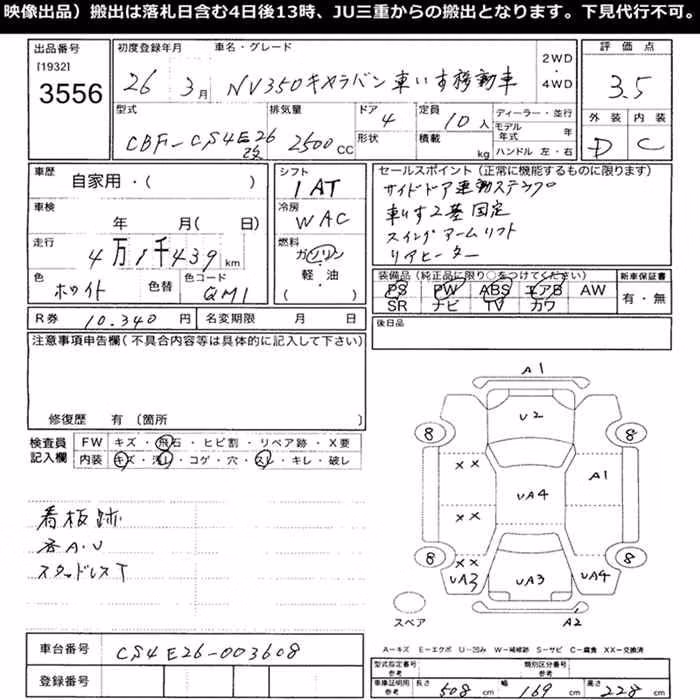 映像出品）搬出は落札日含む4日後13時、JU三重からの搬出となります。下見代行不可。
出品番号 [1932] 3556
初度登録年月 26年 3月
車名・グレード NV350キャラバン 車いす移動車
2WD・4WD
評価点 3.5
外装 D 内装 C
型式 CBF-CS4E26改
排気量 2500cc
ドア 4
形状
定員 10人
積載 kg
ディーラー・並行
モデル年式 年
ハンドル 左・右
車歴 自家用・( )
車検 年 月( 日)
走行 4万1千439km
色 ホワイト 色替 色コード QM1
シフト 1AT
冷房 WAC
燃料 ガソリン・軽・油 ( )
セールスポイント（正常に機能するものに限ります）
サイドドア電動ステップ
車いす2基固定
スイングアームリフト
リアヒーター
装備品（純正品に限り○をつけてください）
PS PW ABS エアB AW
SR ナビ TV カワ
新車保証書 有・無
後日品
R券 10.340円 名変期限 月 日
注意事項申告欄(不具合内容等は具体的に記入して下さい)
修復歴 有〔箇所 〕
検査員記入欄
FW キズ・飛石・ヒビ割・リペア跡・X要
内装 キズ・汚れ・コゲ・穴・スレ・キレ・破レ
看板跡
各A.U
スタッドレスT
車台番号 CS4E26-003608
登録番号
A1
U2
8 8
XX A1
UA4
XX
8 8
XX
UA3 UA3 UA4
スペア A2
A－キズ E－エクボ U－凹み W－補修跡 S－サビ C－腐食 XX－交換済
型式指定番号 参考 類別区分番号
車庫証明用 参考 長さ 508cm 幅 169cm 高さ 228cm